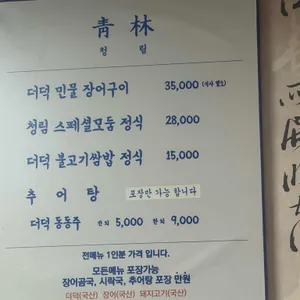 靑林
청림
더덕 민물 장어구이 35,000
청림 스페셜모둠 정식 28,000
더덕 불고기쌈밥 정식 15,000
추어탕 포장만 가능 합니다
더덕 동동주 반되 5,000 한되 9,000
전메뉴 1인분 가격 입니다.
모든메뉴 포장가능
장어곰국, 시락국, 추어탕 포장 만원
더덕(국산) 장어(국산) 돼지고기(국산)